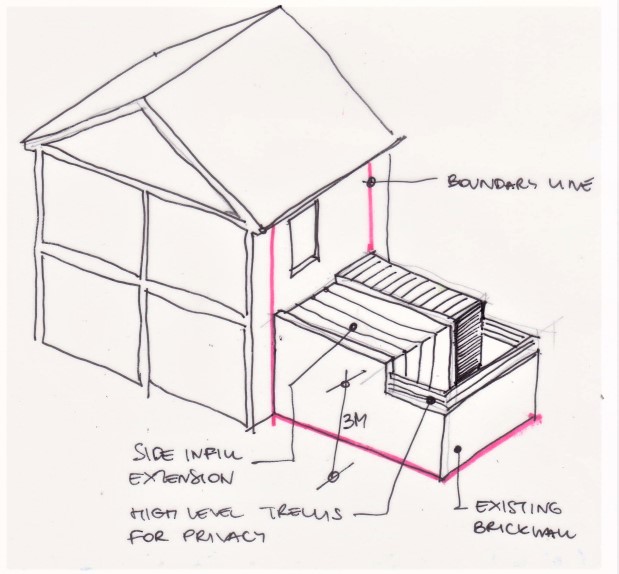 BOUNDARY LINE
3M
SIDE INFILL
EXTENSION
HIGH LEVEL TRELLIS
FOR PRIVACY
EXISTING
BRICKWALL